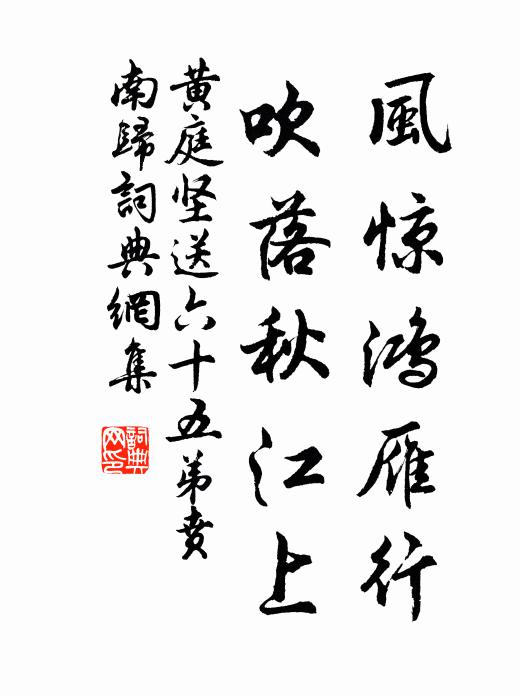 風惊鸿雁行
吹落秋江上
黄庭坚送六十五弟賁
南歸詞典網集
詞典网印